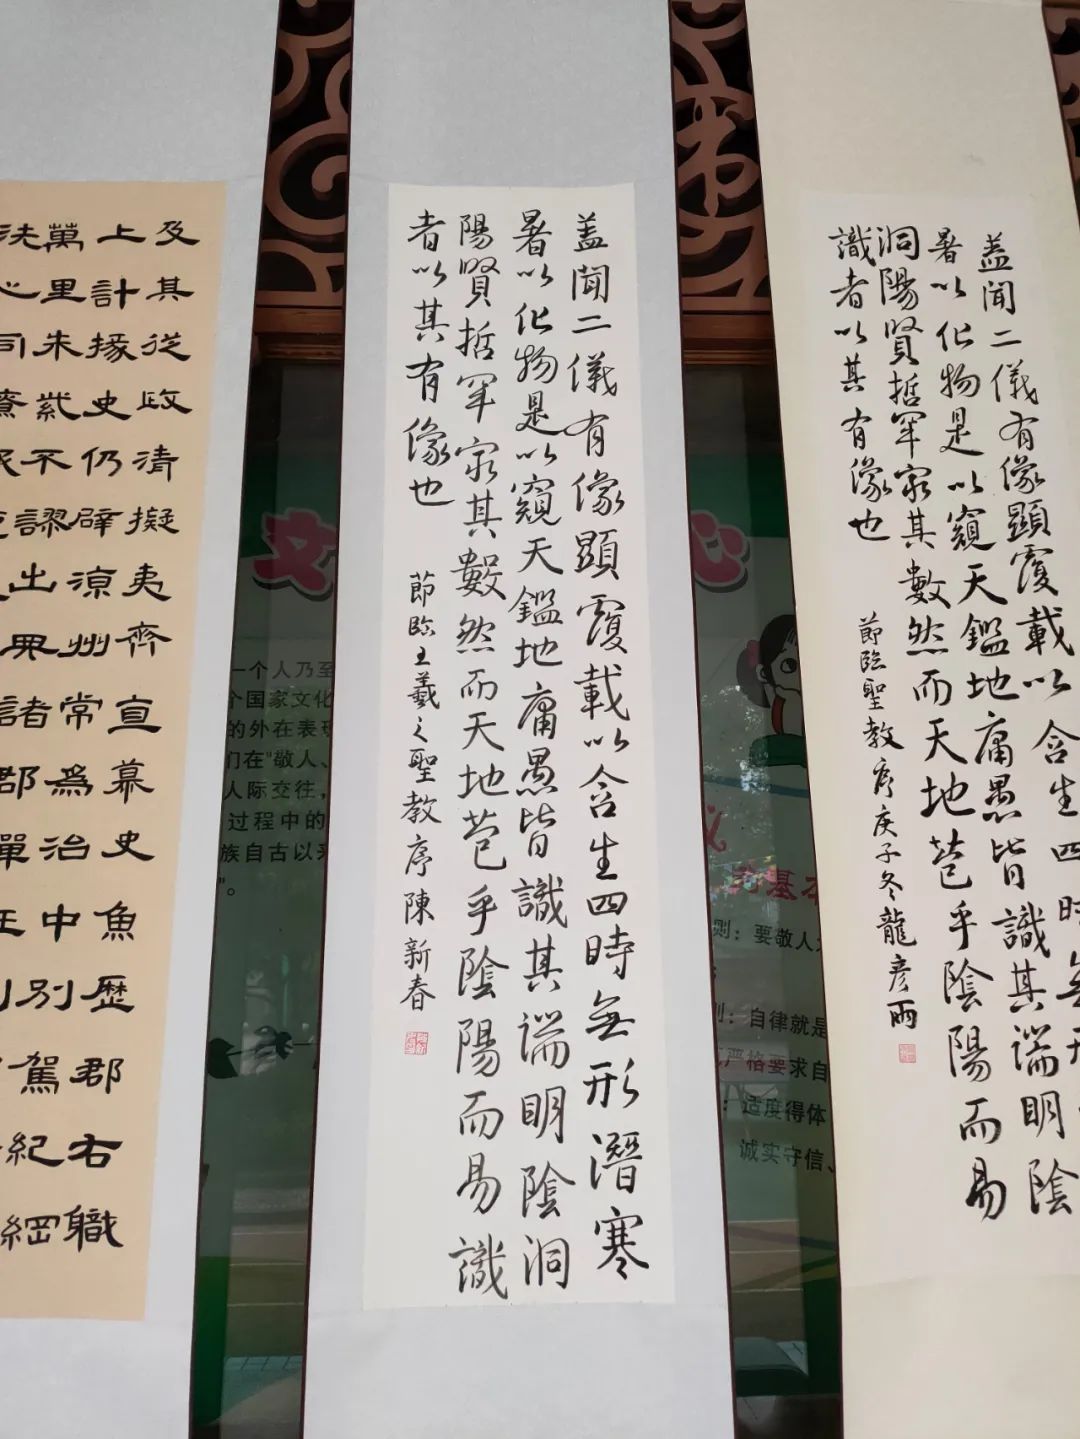 盖闻二儀有像顯覆載以含生四時無形潛寒
暑以化物是以窺天鑑地庸愚皆識其端明陰洞
陽賢哲罕窮其數然而天地苞乎陰陽而易識
者以其有像也
節臨王羲之聖教序陳新春
盖闻二儀有像顯覆載以含生四時無形
暑以化物是以窺天鑑地庸愚皆識其端明陰
洞陽賢哲罕窮其數然而天地苞乎陰陽而易
識者以其有像也
節臨聖教序庚子冬龍彦雨
及其從政清擬夷齊直慕史魚歷郡右職
上計掾史仍辟涼州常為治中別駕紀綱
萬里朱紫不謬出典諸郡彈
文
心
一个人乃至
个国家文化
的外在表现
们在"敬人、
人际交往，
过程中的
族自古以来
"。
的基本
则：要敬人
则：自律就是
严格要求自
：适度得体
诚实守信、